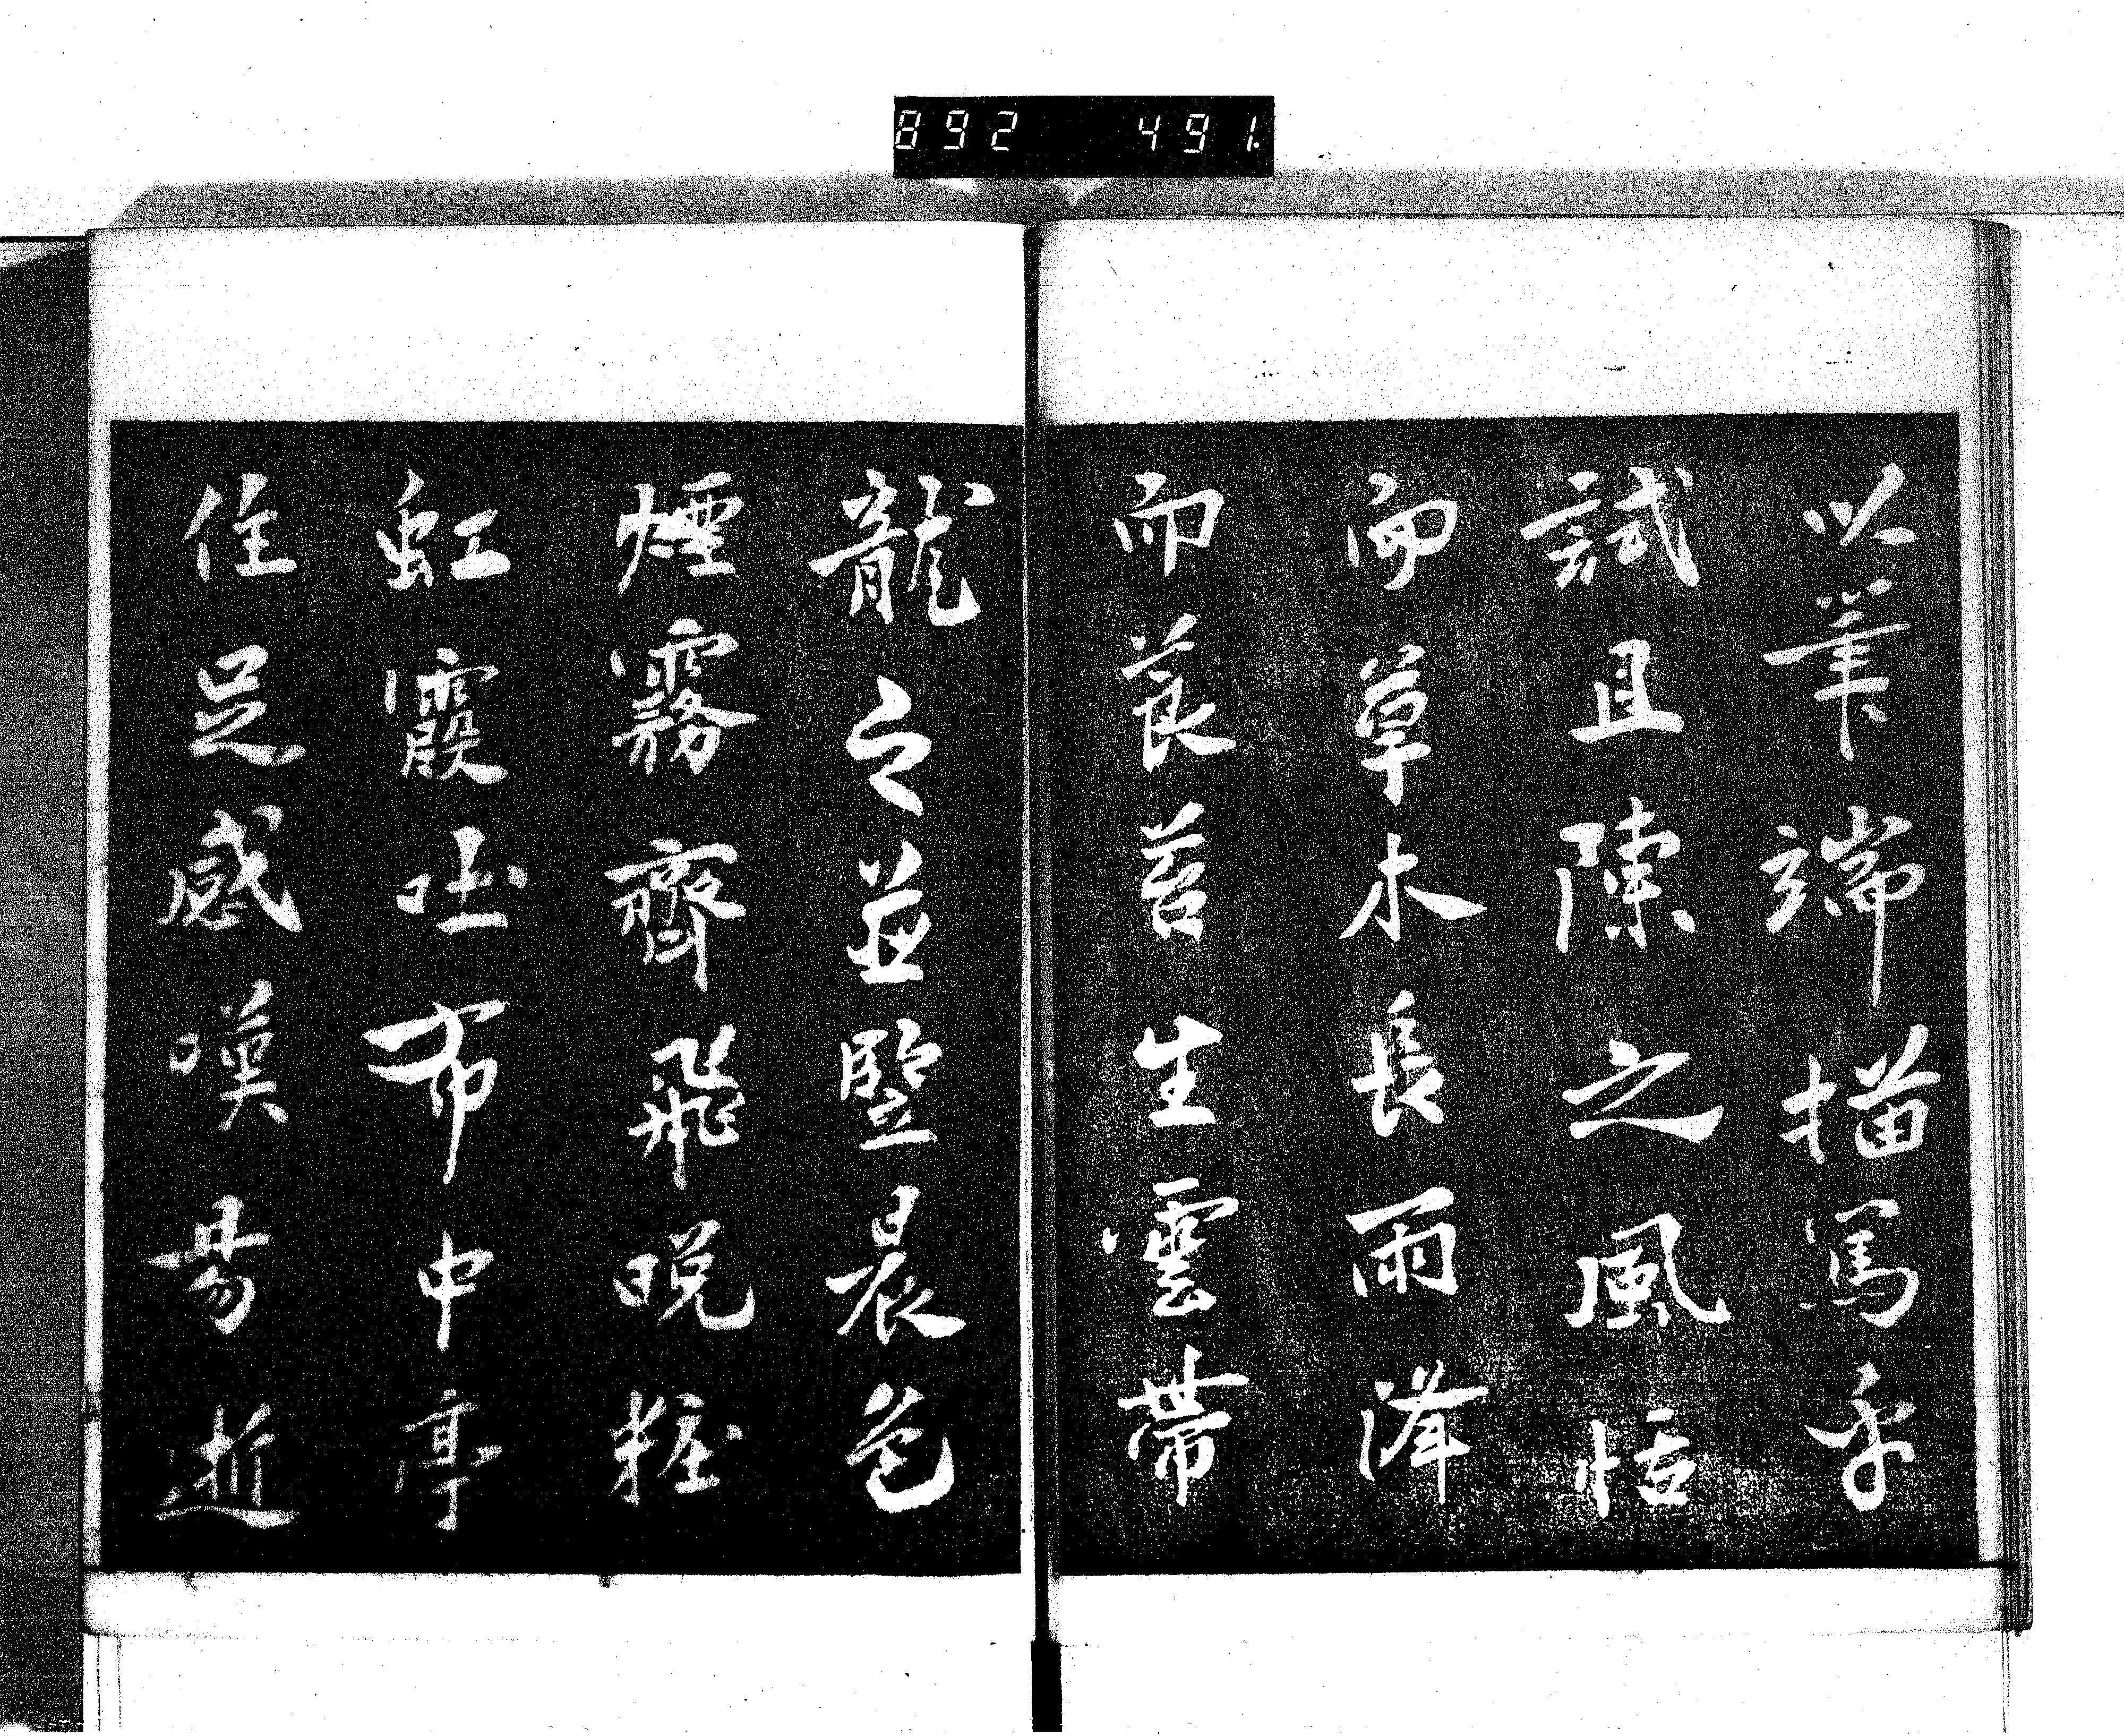 892 491.
以筆端描寫乎
試且陳之風恬
而草木長雨澤
而莨苕生雲帶
龍之並暨晨色
煙霧齊飛晚粧
虹霞丕布中亭
住足感嘆易逝